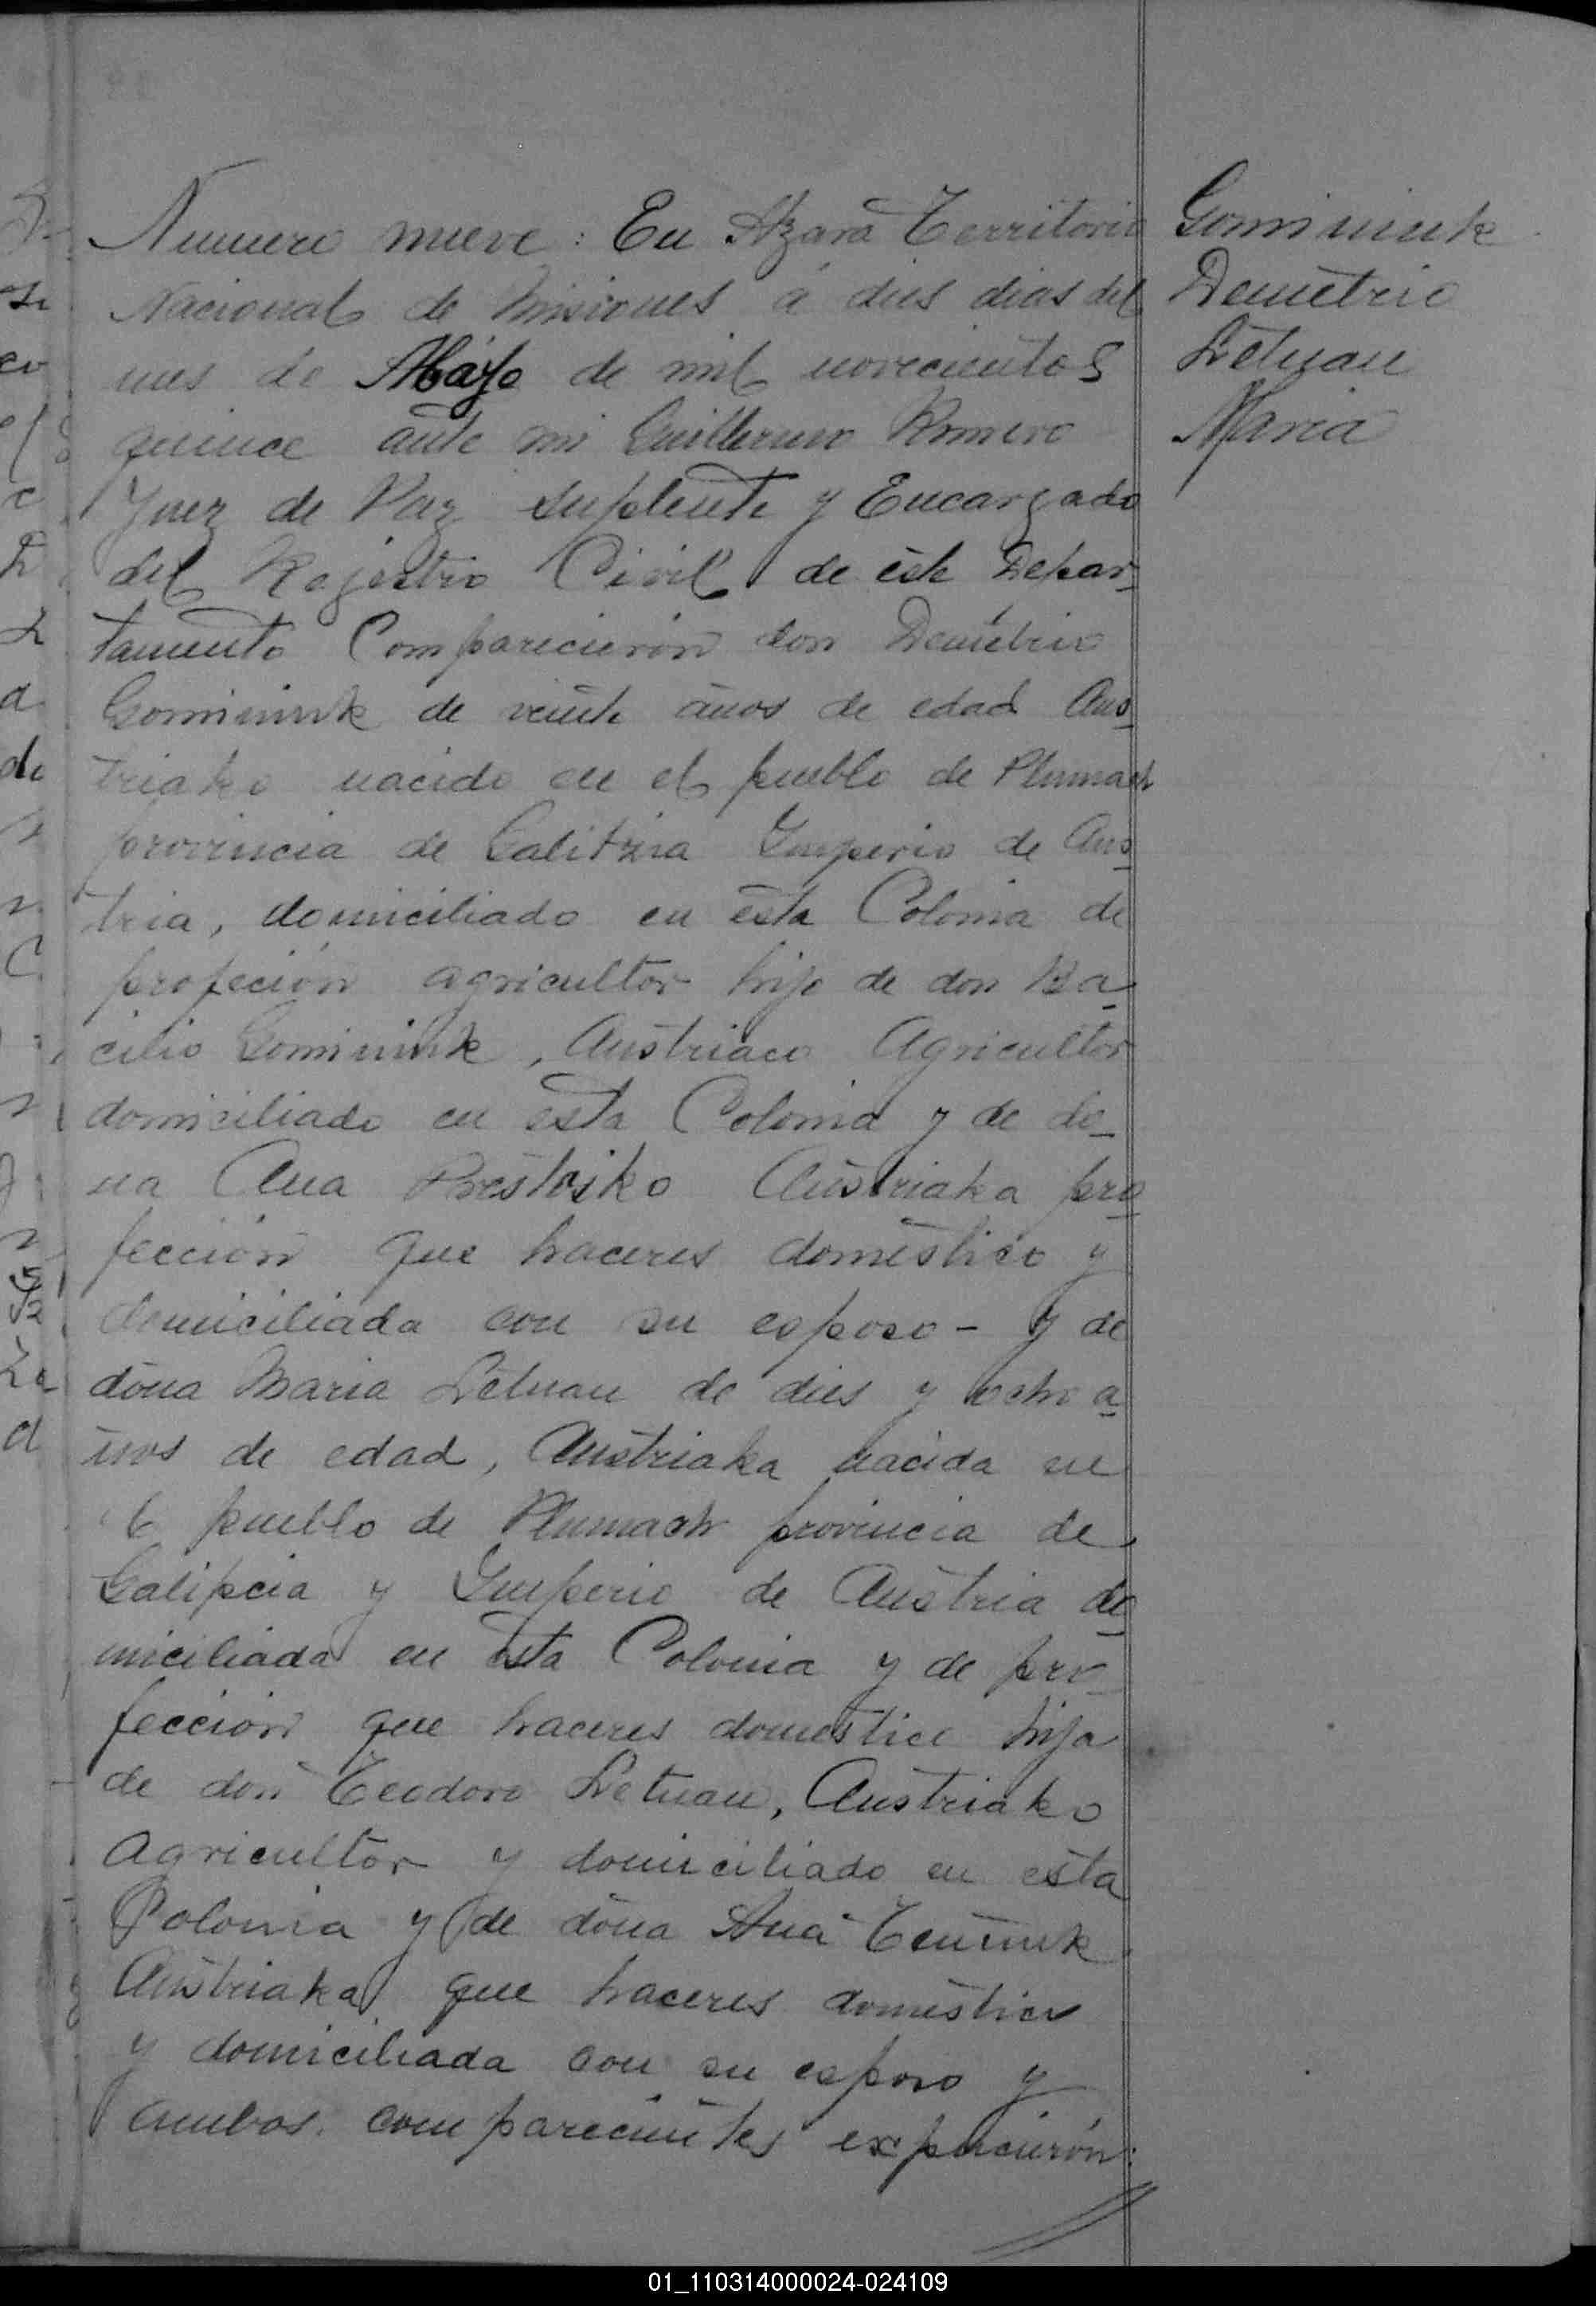 Numero nueve: En Azara Territorio
Nacional de Misiones á dies dias del
mes de Mayo de mil novecientos
quince ante mi Guillermo Romero
Juez de Paz suplente y Encargado
del Rejistro Civil de éste Depar-
tamento Comparecieron don Demetrio
Gominiuk de veinte años de edad Aus-
triako nacido en el pueblo de Plumach
provincia de Galitzia Imperio de Aus-
tria, domiciliado en esta Colonia de
profeción agricultor hijo de don Ba-
cilio Gominiuk, Austriaco Agricultor
domiciliado en esta Colonia y de do-
ña Ana Austriaka pro-
fección que haceres doméstico y
domiciliada con su esposo - y de
doña Maria Letnan de dies y ocho a-
ños de edad, Austriaka nacida en
el pueblo de Plumach provincia de
Galipcia y Imperio de Austria do-
miciliada en esta Colonia y de pro-
fección que haceres domestico hija
de don Teodoro Letnan, Austriako
agricultor y domiciliado en esta
Colonia y de doña Ana
Austriaka que haceres domestico
y domiciliada con su esposo y
ambos comparecientes expucierón:
Gominiuk
Demetrio
Letnan
Maria
01_110314000024-024109